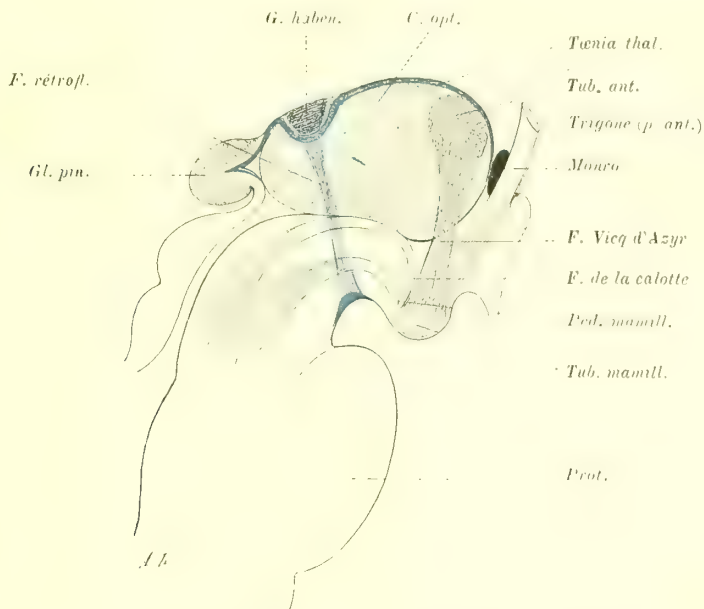 G. haben.
C. opt.
Tœnia thal.
F. rétrofl.
Tub. ant.
Trigone (p. ant.)
Gl. pin.
Monro
F. Vicq d'Azyr
F. de la calotte
Ped. mamill.
Tub. mamill.
Prot.